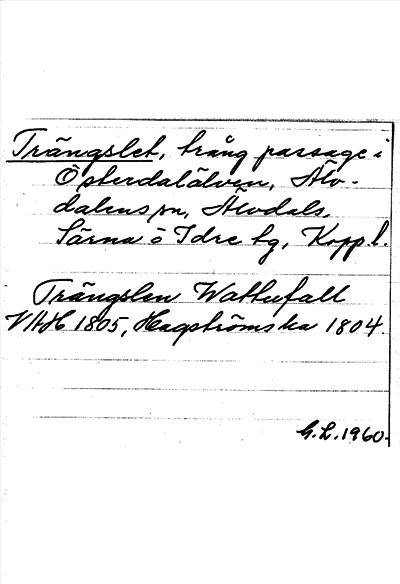 Trängslet, trång passage i
Österdalälven, Älv-
dalens sn, Älvdals,
Särna o Idre tg, Kopp. l.
Trängslen Wattufall
VAH 1805, Hagströmska 1804.
G.L. 1960.